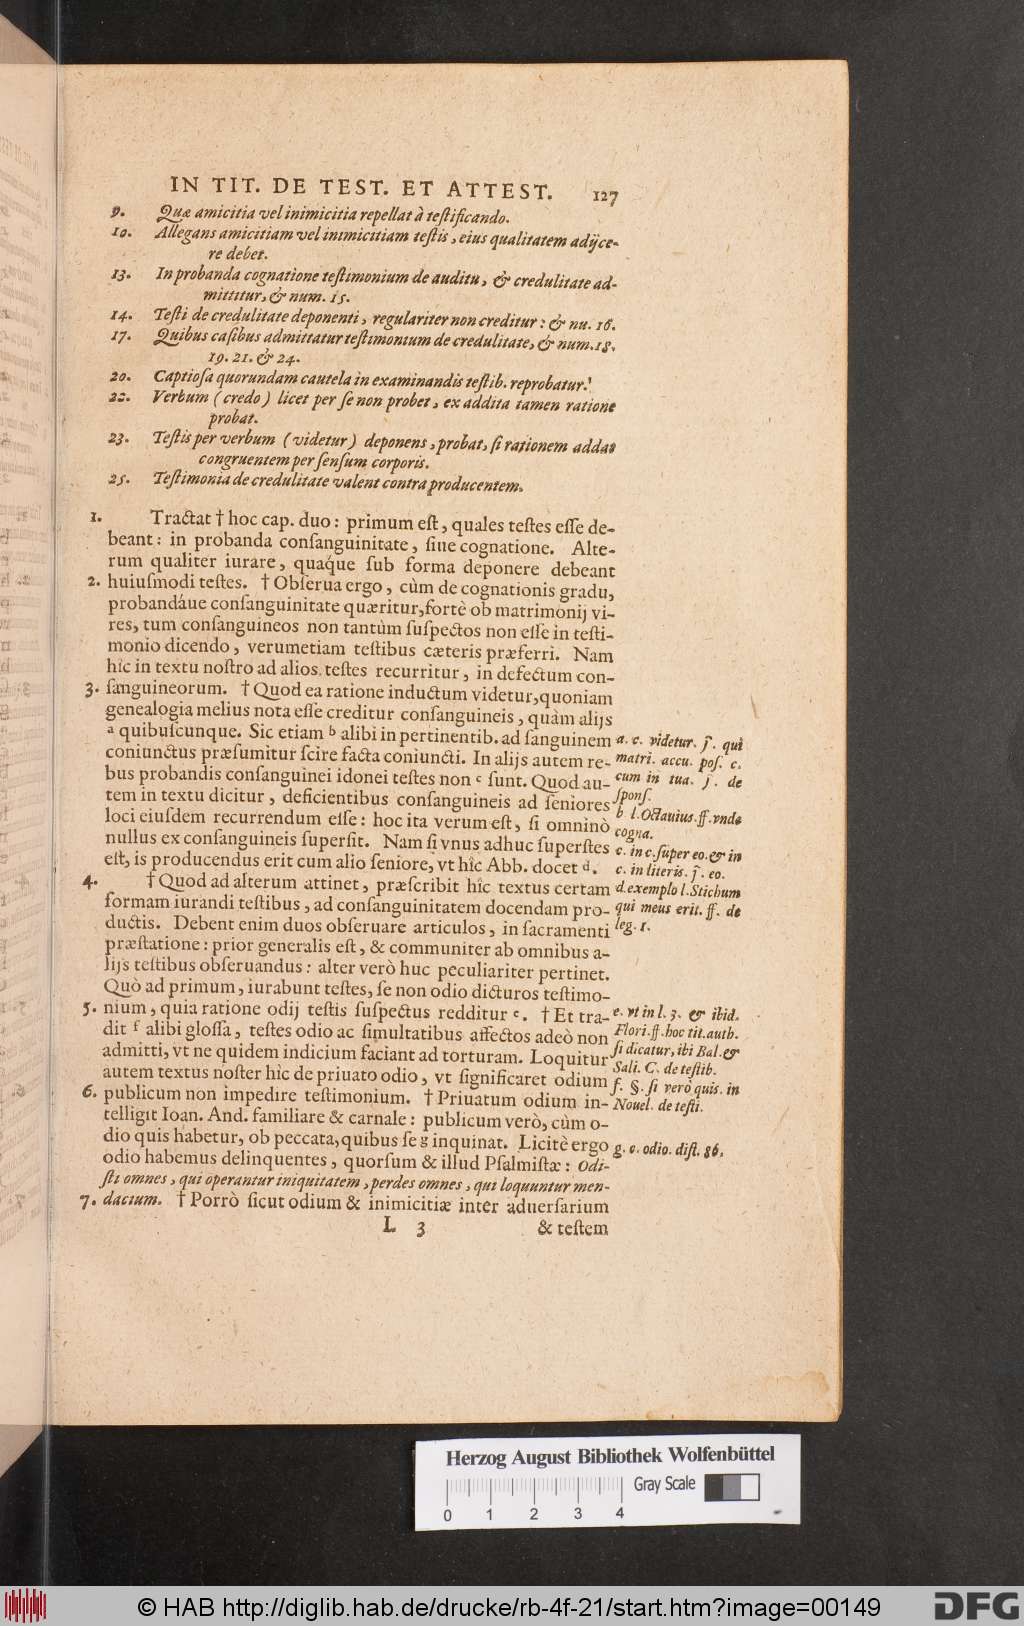 IN TIT. DE TEST. ET ATTEST. 127
9. Quæ amicitia vel inimicitia repellat à teſtificando.
10. Allegans amicitiam vel inimicitiam teſtis, eius qualitatem adijce-
re debet.
13. In probanda cognatione teſtimonium de auditu, & credulitate ad-
mittitur, & num. 15.
14. Teſti de credulitate deponenti, regulariter non creditur: & nu. 16.
17. Quibus caſibus admittatur teſtimonium de credulitate, & num. 18.
19. 21. & 24.
20. Captioſa quorundam cautela in examinandis teſtib. reprobatur.
22. Verbum (credo) licet per ſe non probet, ex addita tamen ratione
probat.
23. Teſtis per verbum (videtur) deponens, probat, ſi rationem addat
congruentem per ſenſum corporis.
25. Teſtimonia de credulitate valent contra producentem.
1. Tractat † hoc cap. duo: primum eſt, quales teſtes eſſe de-
beant: in probanda conſanguinitate, ſiue cognatione. Alte-
rum qualiter iurare, quaq́ue ſub forma deponere debeant
2. huiuſmodi teſtes. † Obſerua ergo, cùm de cognationis gradu,
probandáue conſanguinitate quæritur, fortè ob matrimonij vi-
res, tum conſanguineos non tantùm ſuſpectos non eſſe in teſti-
monio dicendo, verumetiam teſtibus cæteris præferri. Nam
hîc in textu noſtro ad alios teſtes recurritur, in defectum con-
3. ſanguineorum. † Quod ea ratione inductum videtur, quoniam
genealogia melius nota eſſe creditur conſanguineis, quàm alijs
a quibuſcunque. Sic etiam b alibi in pertinentib. ad ſanguinem
coniunctus præſumitur ſcire facta coniuncti. In alijs autem re-
bus probandis conſanguinei idonei teſtes non c ſunt. Quod au-
tem in textu dicitur, deficientibus conſanguineis ad ſeniores
loci eiuſdem recurrendum eſſe: hoc ita verum eſt, ſi omninò
nullus ex conſanguineis ſuperſit. Nam ſi vnus adhuc ſuperſtes
eſt, is producendus erit cum alio ſeniore, vt hîc Abb. docet d.
4. † Quod ad alterum attinet, præſcribit hîc textus certam
formam iurandi teſtibus, ad conſanguinitatem docendam pro-
ductis. Debent enim duos obſeruare articulos, in ſacramenti
præſtatione: prior generalis eſt, & communiter ab omnibus a-
lijs teſtibus obſeruandus: alter verò huc peculiariter pertinet.
Quò ad primum, iurabunt teſtes, ſe non odio dicturos teſtimo-
5. nium, quia ratione odij teſtis ſuſpectus redditur e. † Et tra-
dit f alibi gloſſa, teſtes odio ac ſimultatibus affectos adeò non
admitti, vt ne quidem indicium faciant ad torturam. Loquitur
autem textus noſter hic de priuato odio, vt ſignificaret odium
6. publicum non impedire teſtimonium. † Priuatum odium in-
telligit Ioan. And. familiare & carnale: publicum verò, cùm o-
dio quis habetur, ob peccata, quibus ſe g inquinat. Licitè ergo
odio habemus delinquentes, quorſum & illud Pſalmiſtæ: Odi-
ſti omnes, qui operantur iniquitatem, perdes omnes, qui loquuntur men-
7. dacium. † Porrò ſicut odium & inimicitiæ inter aduerſarium
L 3 & teſtem
a. c. videtur. j. qui
matri. accu. poſ. c.
cum in tua. j. de
ſponſ.
b l. Octauius. ff. vnde
cogna.
c. in c. ſuper eo. & in
c. in literis. j. eo.
d. exemplo l. Stichum
qui meus erit. ff. de
leg. 1.
e. vt in l. 3. & ibid.
Flori. ff. hoc tit. auth.
ſi dicatur, ibi Bal. &
Sali. C. de teſtib.
f. §. ſi verò quis. in
Nouel. de teſti.
g. c. odio. diſt. 86.
Herzog August Bibliothek Wolfenbüttel
Gray Scale
0 1 2 3 4
© HAB http://diglib.hab.de/drucke/rb-4f-21/start.htm?image=00149
DFG